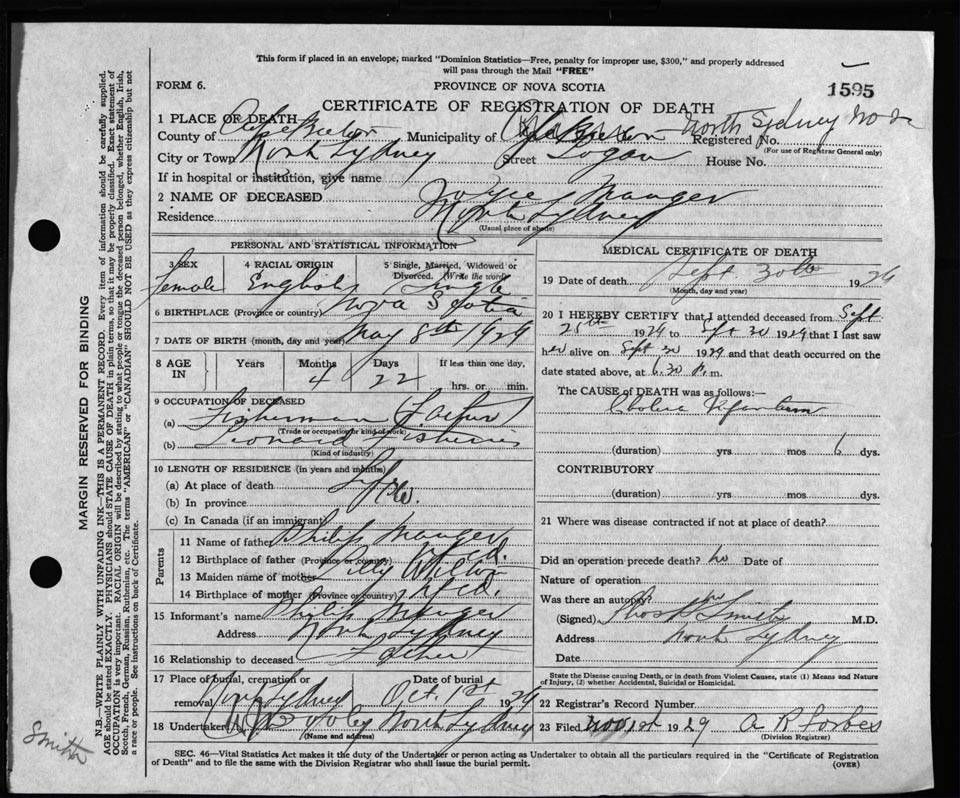 This form if placed in an envelope, marked "Dominion Statistics—Free, penalty for improper use, $300," and properly addressed
will pass through the Mail "FREE"
FORM 6.
PROVINCE OF NOVA SCOTIA
1595
CERTIFICATE OF REGISTRATION OF DEATH
1 PLACE OF DEATH
County of Cape Breton Municipality of Registered No. North Sydney
(For use of Registrar General only)
City or Town North Sydney Street Logan House No.
If in hospital or institution, give name
2 NAME OF DECEASED Mauger
Residence North Sydney
(Usual place of abode)
PERSONAL AND STATISTICAL INFORMATION
3 SEX 4 RACIAL ORIGIN 5 Single, Married, Widowed or Divorced. (Write the word)
Female English Single
6 BIRTHPLACE (Province or country) Nova Scotia
7 DATE OF BIRTH (month, day and year) May 8th 1929
8 AGE IN Years Months Days If less than one day,
4 22 hrs. or min.
9 OCCUPATION OF DECEASED
(a) Fisherman Father
(Trade or occupation or kind of work)
(b) Leonard Fisheries
(Kind of industry)
10 LENGTH OF RESIDENCE (in years and months)
(a) At place of death Life
(b) In province
(c) In Canada (if an immigrant)
Parents
11 Name of father Philip Mauger
12 Birthplace of father (Province or country) Nfld.
13 Maiden name of mother
14 Birthplace of mother (Province or country) Nfld.
15 Informant's name Philip Mauger
Address North Sydney
16 Relationship to deceased Father
17 Place of burial, cremation or removal Date of burial
North Sydney Oct. 1st 1929
18 Undertaker North Sydney
(Name and address)
MEDICAL CERTIFICATE OF DEATH
19 Date of death Sept. 30th 1929
(Month, day and year)
20 I HEREBY CERTIFY that I attended deceased from Sept
25th 1929 to Sept 30 1929 that I last saw
her alive on Sept 30 1929 and that death occurred on the
date stated above, at 6.30 P. m.
The CAUSE OF DEATH was as follows:—
Cholera Infantum
(duration) yrs mos 6 dys.
CONTRIBUTORY
(duration) yrs. mos. dys.
21 Where was disease contracted if not at place of death?
Did an operation precede death? no Date of
Nature of operation
Was there an autopsy? no
(Signed) Smith M.D.
Address North Sydney
Date
State the Disease causing Death, or in death from Violent Causes, state (1) Means and Nature
of Injury, (2) whether Accidental, Suicidal or Homicidal.
22 Registrar's Record Number
23 Filed Nov 1st 1929 A R Forbes
(Division Registrar)
SEC. 46—Vital Statistics Act makes it the duty of the Undertaker or person acting as Undertaker to obtain all the particulars required in the "Certificate of Registration
of Death" and to file the same with the Division Registrar who shall issue the burial permit.
(OVER)
MARGIN RESERVED FOR BINDING
N.B.—WRITE PLAINLY WITH UNFADING INK—THIS IS A PERMANENT RECORD. Every item of information should be carefully supplied.
AGE should be stated EXACTLY. PHYSICIANS should STATE CAUSE OF DEATH in plain terms, so that it may be properly classified. Exact statement of
OCCUPATION is very important. RACIAL ORIGIN will be described by stating to what people or tongue the deceased person belonged, whether English, Irish,
Scotch, French, German, Russian, Ruthenian, etc. The terms "AMERICAN" or "CANADIAN" SHOULD NOT BE USED as they express citizenship but not
a race or people. See instructions on back of Certificate.
Smith